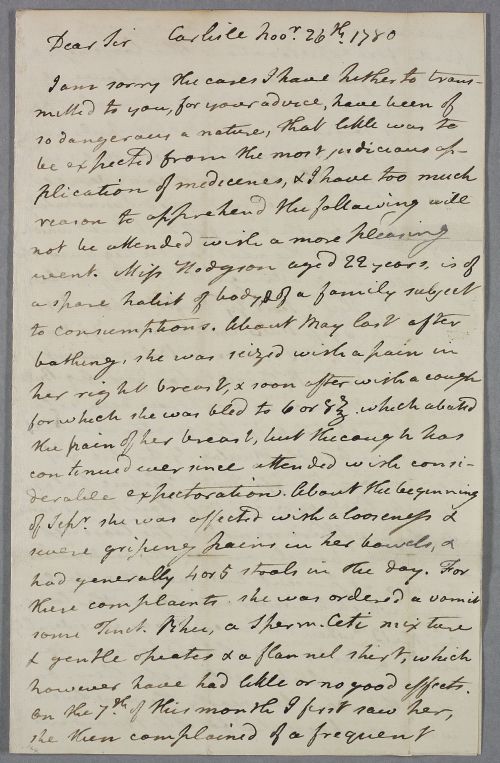 Dear Sir Carlisle Novr. 26th. 1780
I am sorry the cases I have hitherto trans-
mitted to you, for your advice, have been of
so dangerous a nature, that little was to
be expected from the most judicious ap-
plication of medecenes, & I have too much
reason to apprehend the following will
not be attended with a more pleasing
event. Miss Hodgson aged 22 years, is of
a spare habit of body, & of a family subject
to consumptions. About May last after
bathing, she was seized with a pain in
her right breast, & soon after with a cough
for which she was bled to 6 or 8℥, which abated
the pain of her breast, but the cough has
continued ever since attended with consi-
derable expectoration. About the beginning
of Sepr. she was affected with a looseness &
severe griping pains in her bowels, &
had generally 4 or 5 stools in the day. For
these complaints she was ordered a vomit
some Tinct. Rhei, a Sperm. Ceti mixture
& gentle opeates & a flannel shirt, which
however have had little or no good effects.
On the 7th of this month I first saw her,
she then complained of a frequent